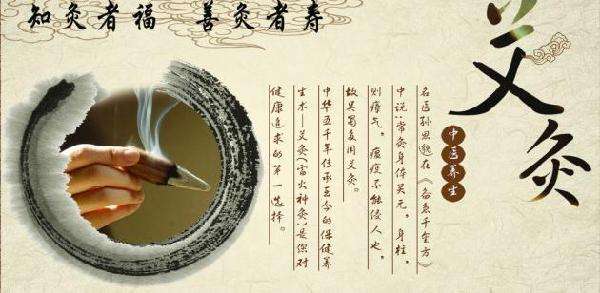 知灸者福 善灸者寿
艾灸
中医养生
名医孙思邈在《备急千金方》
中说:常灸身体关元,身柱,
则疠气,瘟疫不能侵人也,
故吴蜀多用艾灸。
中华五千年传承至今的保健养
生术—艾灸(雷火神灸)是您对
健康追求的第一选择。